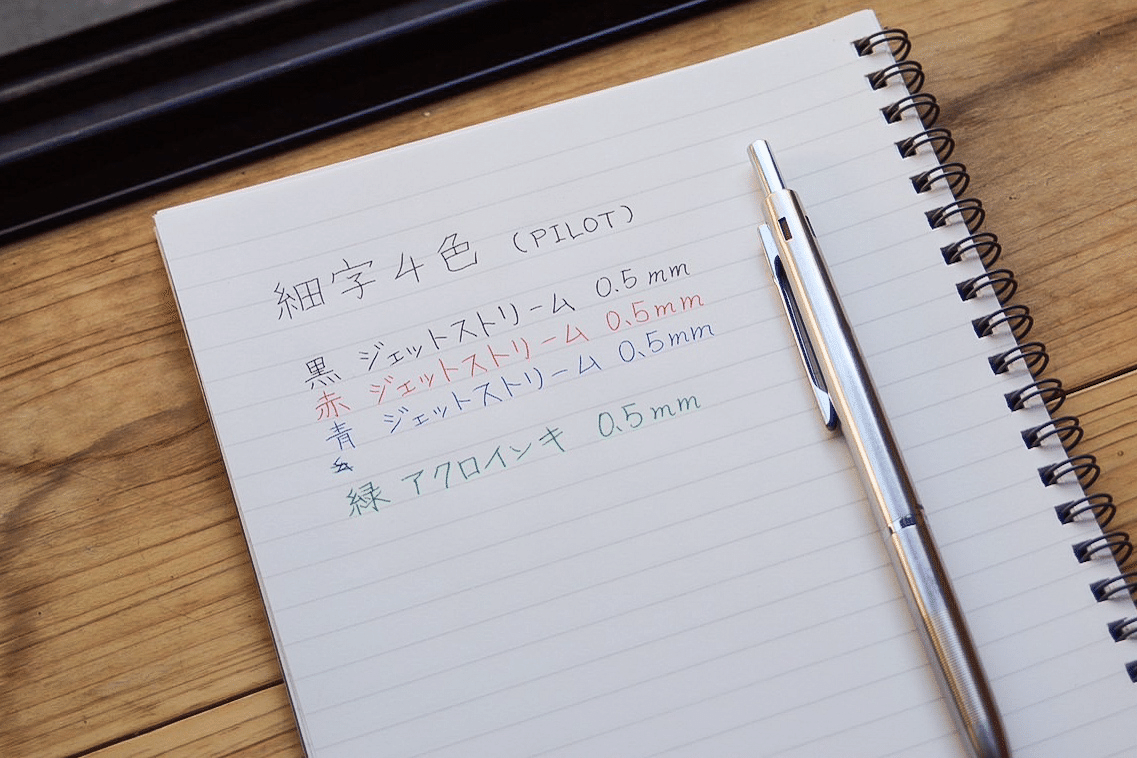 細字4色 (PILOT)
黒 ジェットストリーム 0.5mm
赤 ジェットストリーム 0.5mm
青 ジェットストリーム 0.5mm
緑 アクロインキ 0.5mm